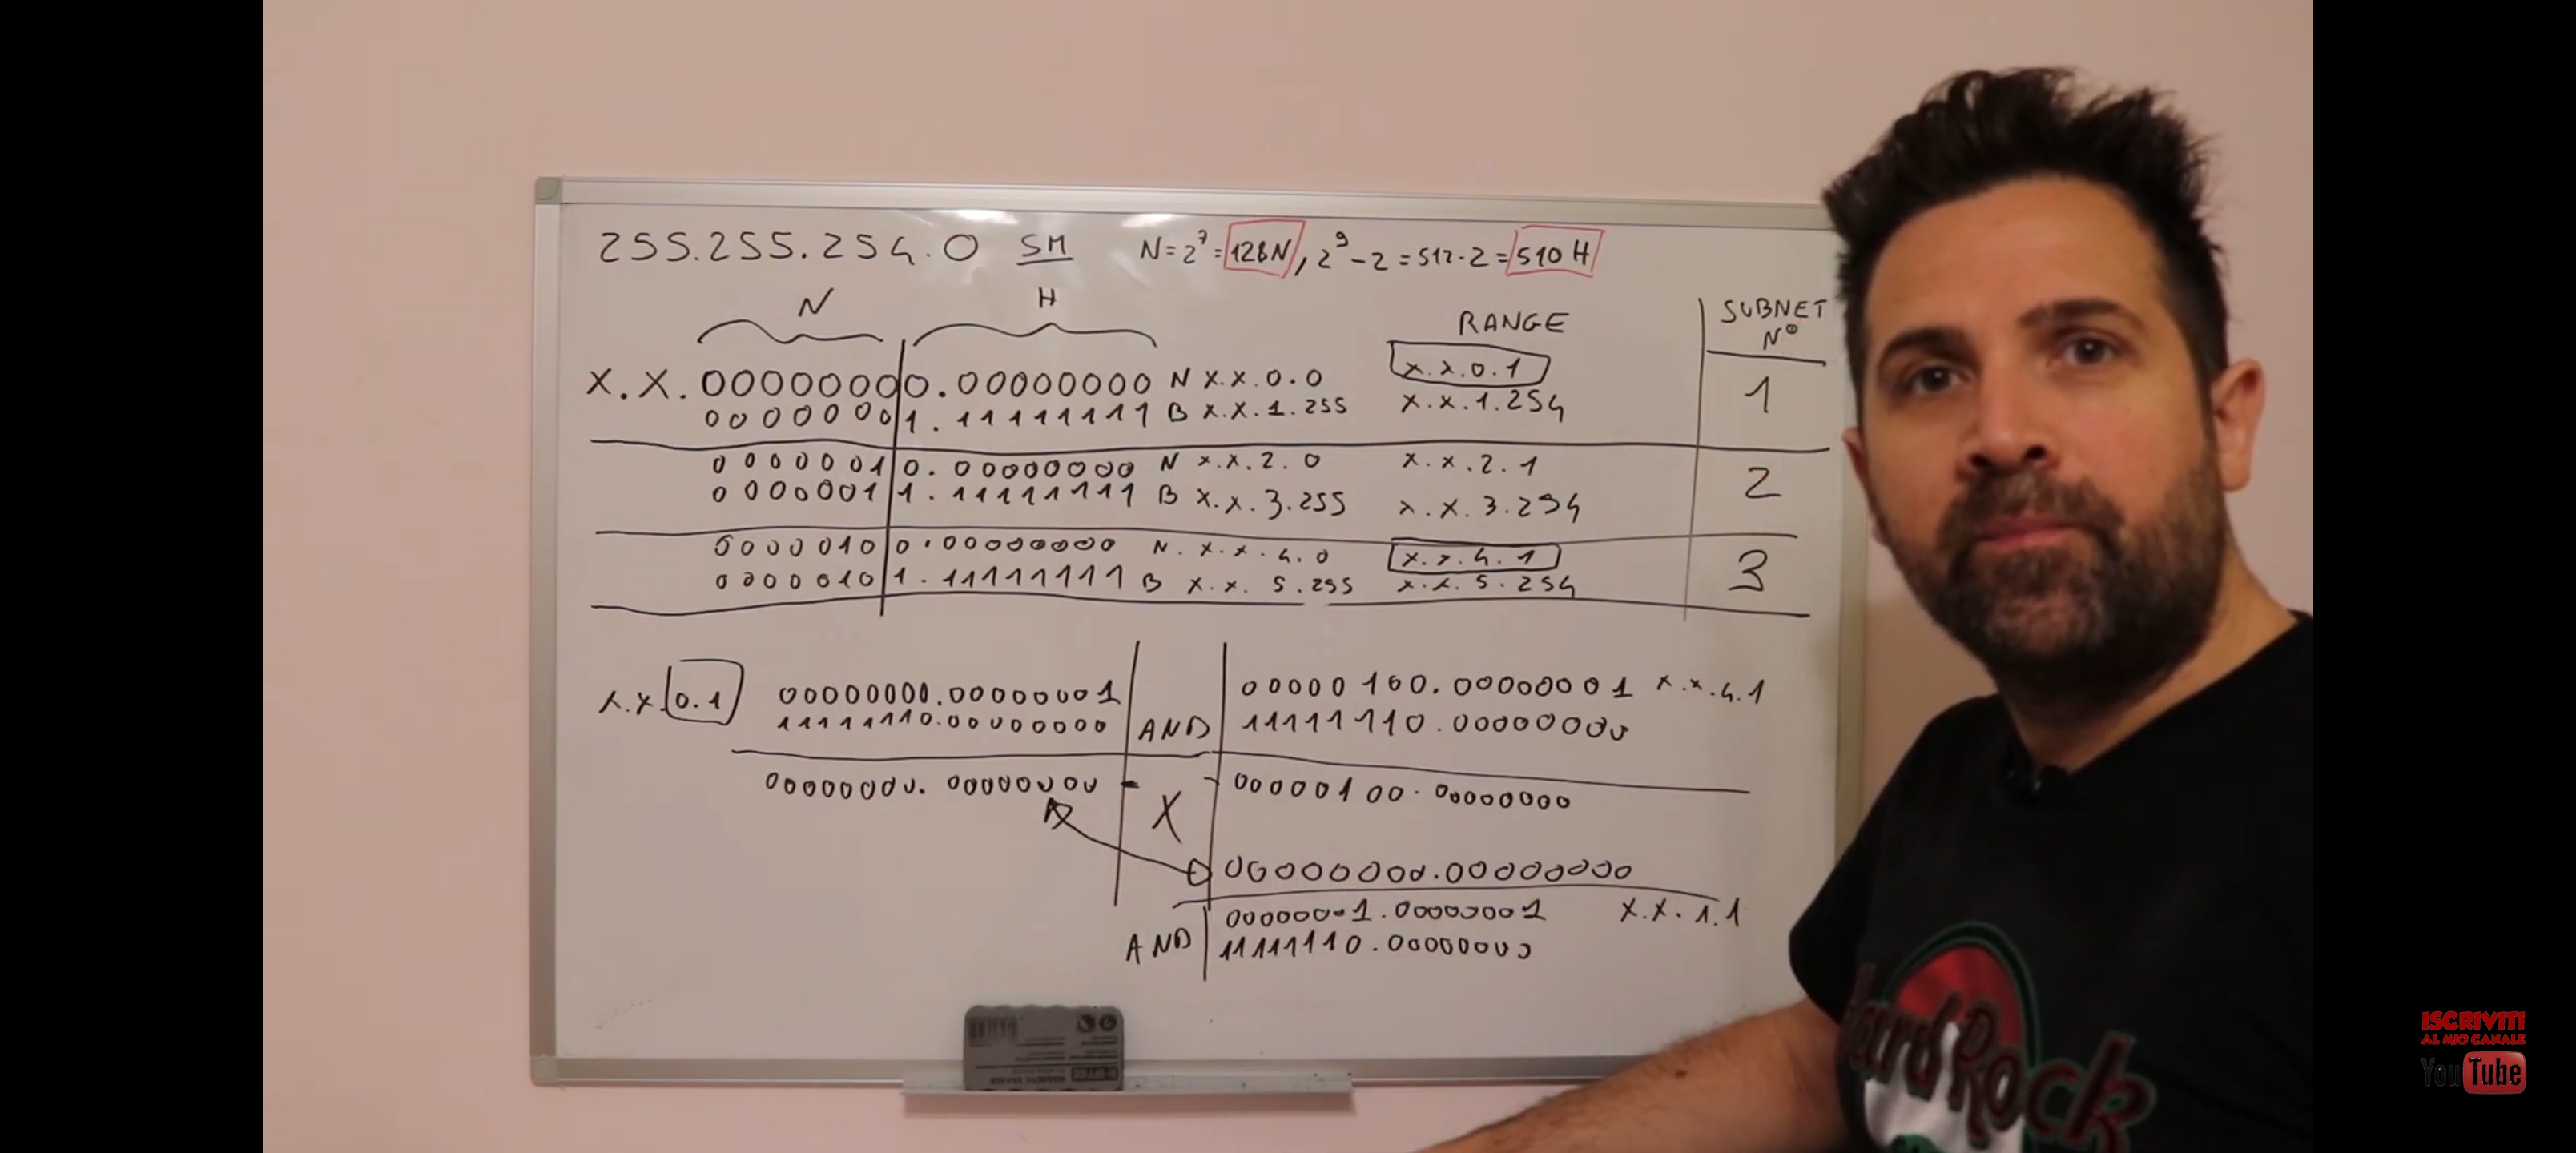 255.255.254.0 SM N=2⁷=128N, 2⁹-2=512-2=510 H
N H RANGE SUBNET N°
X.X.00000000.00000000 N X.X.0.0 X.X.0.1 1
00000001.11111111 B X.X.1.255 X.X.1.254
00000010.00000000 N X.X.2.0 X.X.2.1 2
00000011.11111111 B X.X.3.255 X.X.3.254
00000100.00000000 N. X.X.4.0 X.X.4.1 3
00000101.11111111 B X.X.5.255 X.X.5.254
X.X.0.1 00000000.00000001 00000100.00000001 X.X.4.1
11111110.00000000 AND 11111110.00000000
00000000.00000000 X 00000100.00000000
00000000.00000000
00000001.00000001 X.X.1.1
AND 11111110.00000000
Hard Rock
ISCRIVITI
AL MIO CANALE
YouTube